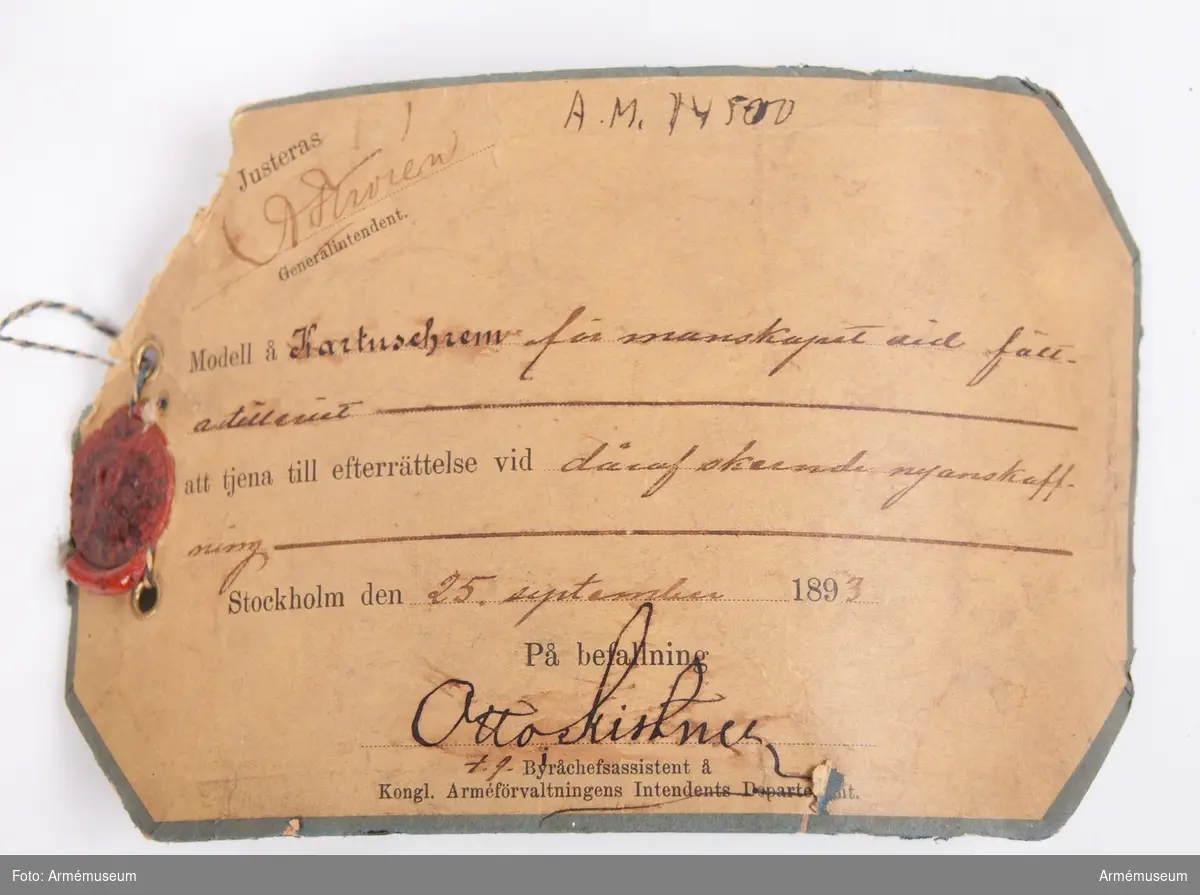 A.M. 14500
Justeras
Generalintendent.
Modell å Kartuschrem för manskapet vid fält-
artilleriet
att tjena till efterrättelse vid däraf skeende nyanskaff-
ning
Stockholm den 25. september 1893
På befallning
Otto
t.j. Byråchefsassistent å
Kongl. Arméförvaltningens Intendents Departement.
Foto: Armémuseum
Armémuseum